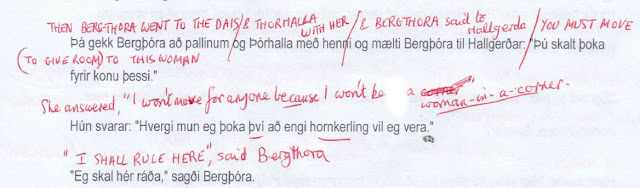 THEN BERG-THORA WENT TO THE DAIS / & THORHALLA WITH HER / & BERGTHORA said to Hallgerda / YOU MUST MOVE
Þá gekk Bergþóra að pallinum og Þórhalla með henni og mælti Bergþóra til Hallgerðar: "Þú skalt þoka
(TO GIVE ROOM) TO THIS WOMAN
fyrir konu þessi."
She answered, "I won't move for anyone because I won't be a corner woman-in-a-corner.
Hún svarar: "Hvergi mun eg þoka því að engi hornkerling vil eg vera."
"I SHALL RULE HERE", said Bergthora
"Eg skal hér ráða," sagði Bergþóra.